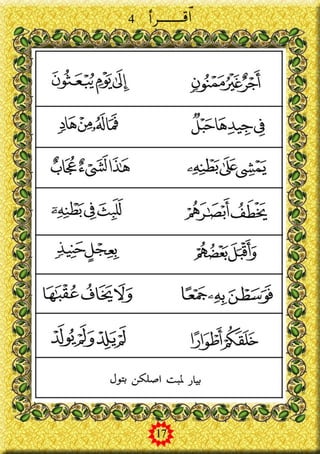 اَقـــرأ 4
أَجْرٌ غَيْرُ مَمْنُونٍ إِلَىٰ يَوْمِ يُبْعَثُونَ
فِي جِيدِهَا حَبْلٌ فَمَا لَهُ مِنْ هَادٍ
يَمْشِي عَلَىٰ بَطْنِهِ هَٰذَا لَشَيْءٌ عُجَابٌ
يَخْطَفُ أَبْصَٰرَهُمْ لَلَبِثَ فِي بَطْنِهِ
وَأَقْبَلَ بَعْضُهُمْ بِعِجْلٍ حَنِيذٍ
فَوَسَطْنَ بِهِ جَمْعًا وَلَا يَخَافُ عُقْبَٰهَا
خَلَقَكُمْ أَطْوَارًا لَمْ يَلِدْ وَلَمْ يُولَدْ
بيار لمبت اصلكن بتول
17